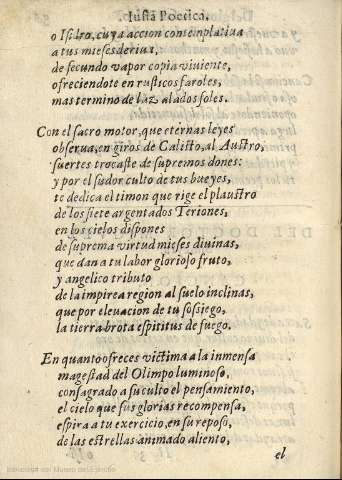 Iusta Poetica,
o Isidro, cuya accion contemplatiua
a tus mieses deriua,
de fecundo vapor copia viuiente,
ofreciendote en rusticos faroles,
mas termino de luz alados soles.
Con el sacro motor, que eternas leyes
obserua, en giros de Calisto, al Austro,
suertes trocaste de supremos dones:
y por el sudor culto de tus bueyes,
te dedica el timon que rige el plaustro
de los siete argentados Teriones,
en los cielos dispones
de suprema virtud mieses diuinas,
que dan a tu labor glorioso fruto,
y angelico tributo
de la impirea region al suelo inclinas,
que por eleuacion de tu sossiego,
la tierra brota espititus de fuego.
En quanto ofreces victima a la inmensa
magestad del Olimpo luminoso,
consagrado a su culto el pensamiento,
el cielo que sus glorias recompensa,
espira a tu exercicio, en su reposo,
de las estrellas animado aliento,
el